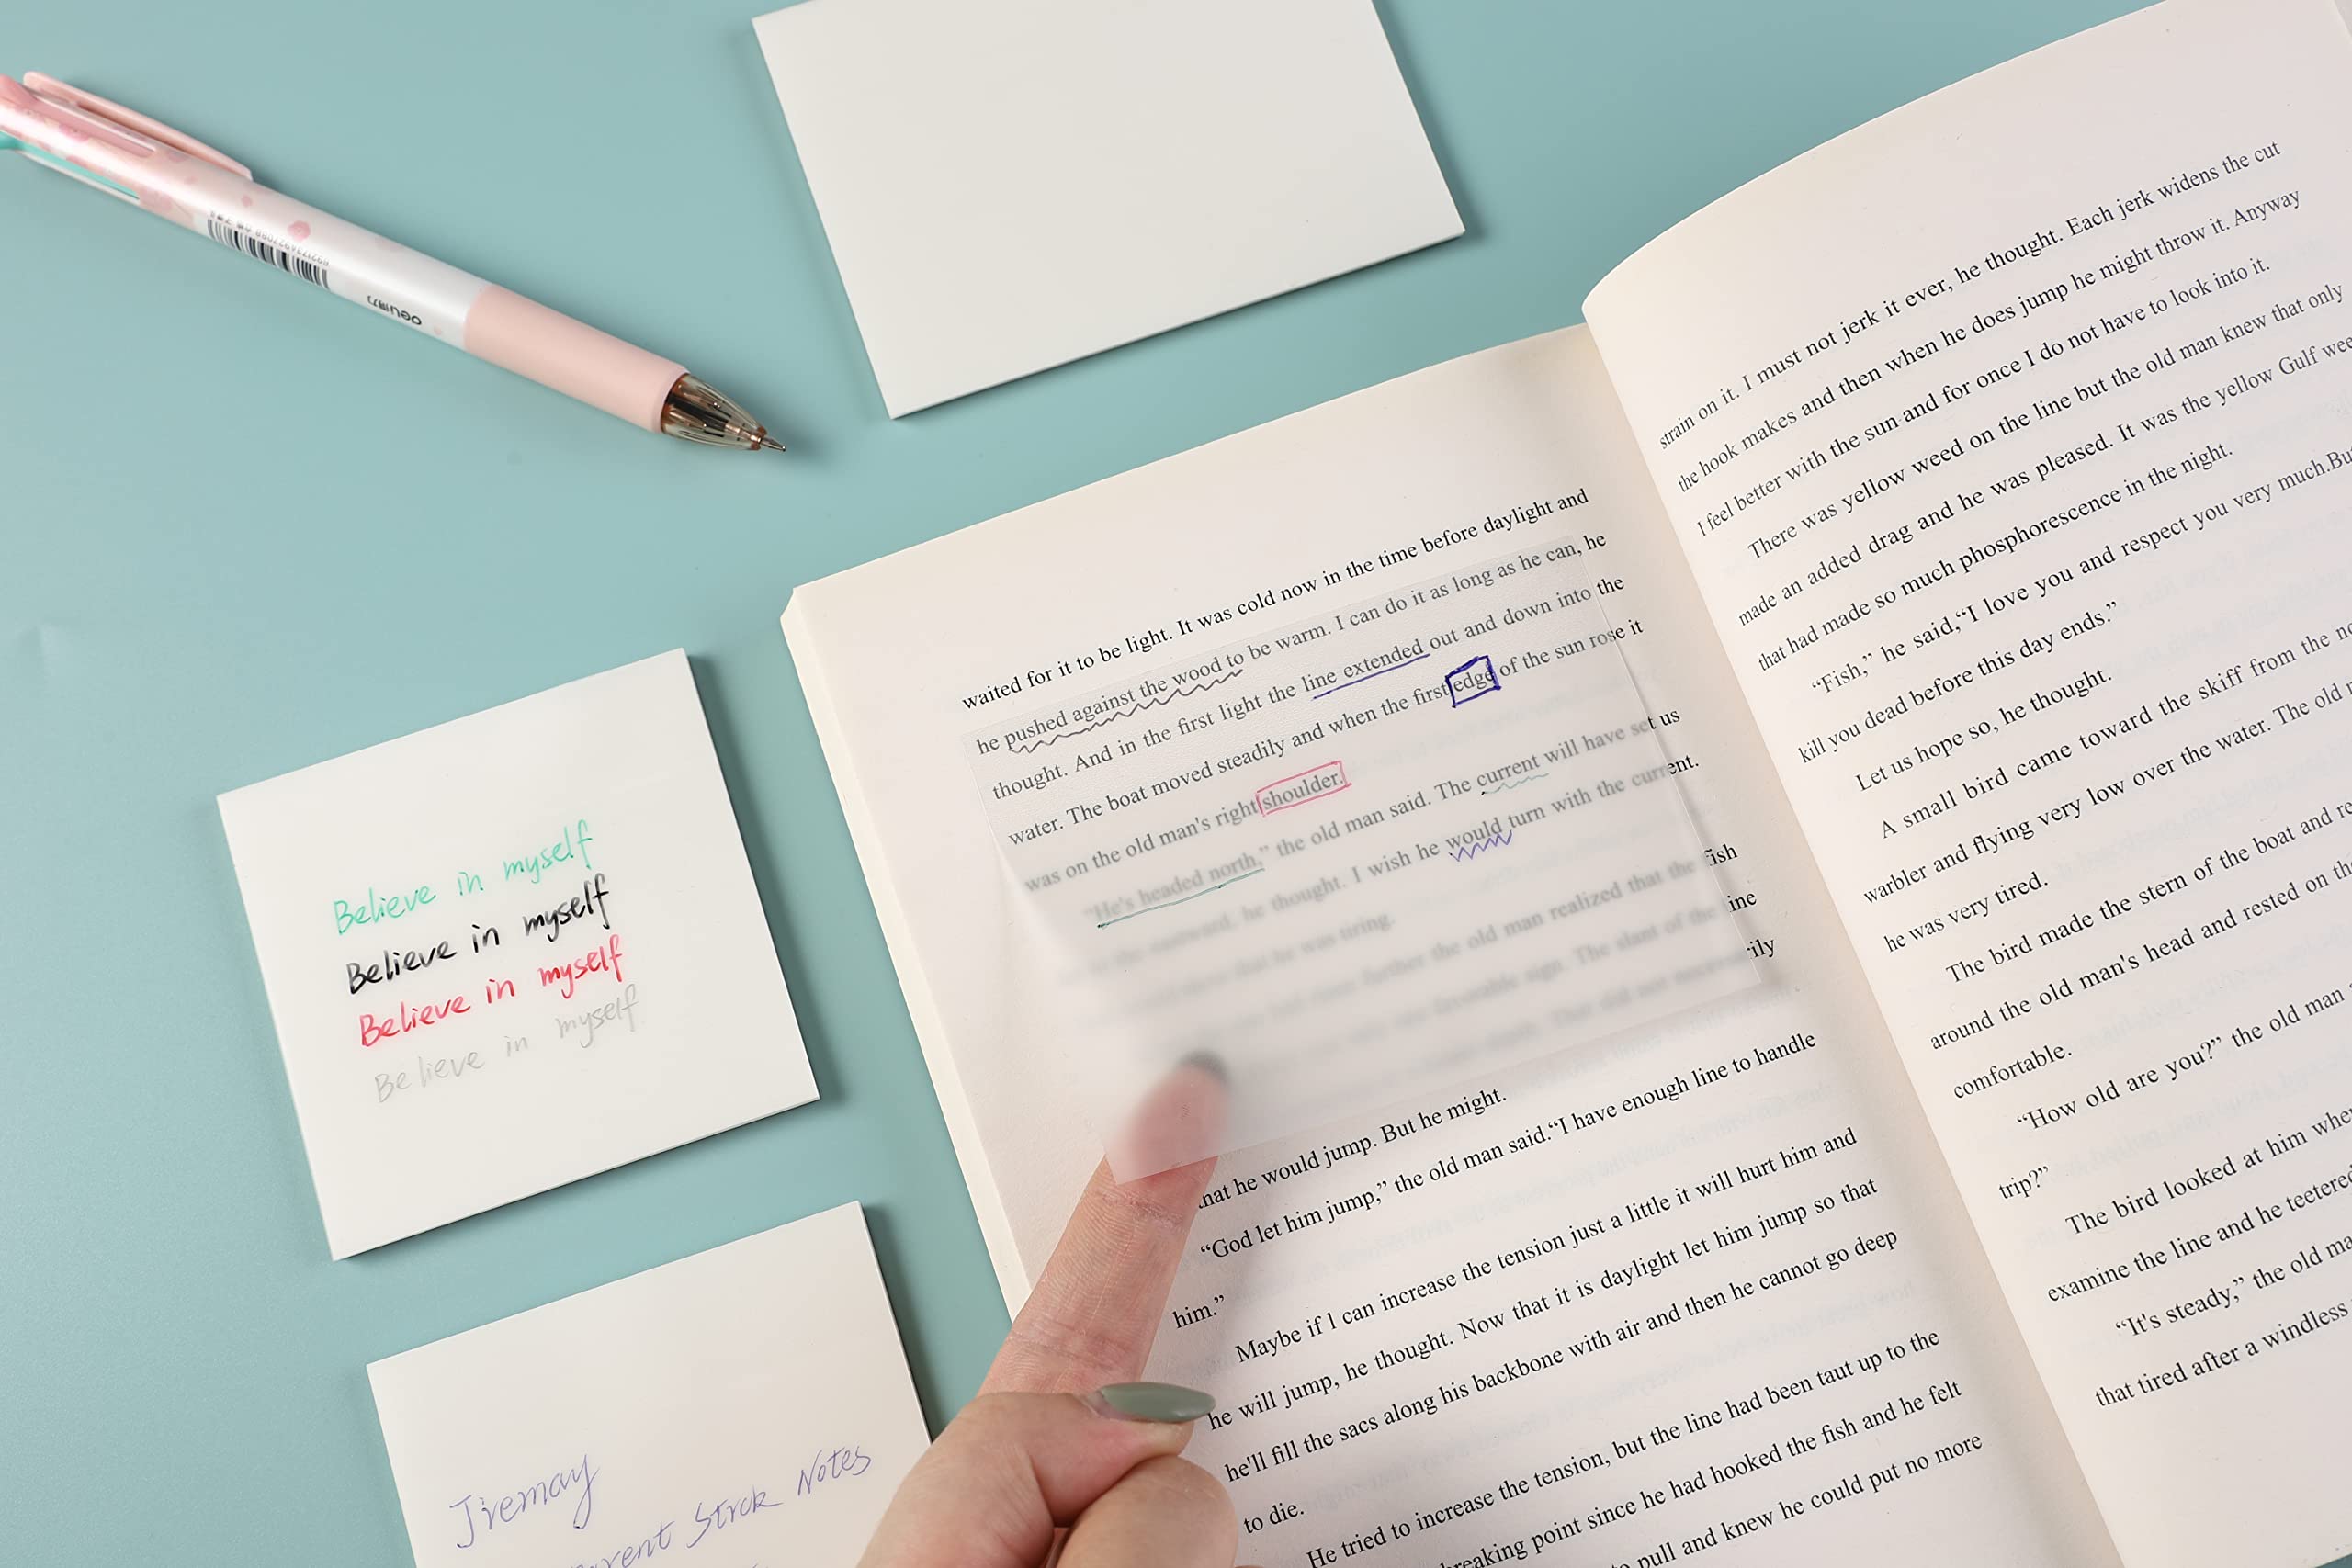 deli
Believe in myself
Believe in myself
Believe in myself
Believe in myself
Jiemay
Strck Notes
waited for it to be light. It was cold now in the time before daylight and
he pushed against the wood to be warm. I can do it as long as he can, he
thought. And in the first light the line extended out and down into the
water. The boat moved steadily and when the first edge of the sun rose it
was on the old man's right shoulder.
“He's headed north,” the old man said. The current will have set us
to the eastward, he thought. I wish he would turn with the current.
that he was tiring.
further the old man realized that the fish
favorable sign. The slant of the line
That did not necessarily
that he would jump. But he might.
“God let him jump,” the old man said.“I have enough line to handle
him.”
Maybe if I can increase the tension just a little it will hurt him and
he will jump, he thought. Now that it is daylight let him jump so that
he'll fill the sacs along his backbone with air and then he cannot go deep
to die.
He tried to increase the tension, but the line had been taut up to the
breaking point since he had hooked the fish and he felt
to pull and knew he could put no more
strain on it. I must not jerk it ever, he thought. Each jerk widens the cut
the hook makes and then when he does jump he might throw it. Anyway
I feel better with the sun and for once I do not have to look into it.
There was yellow weed on the line but the old man knew that only
made an added drag and he was pleased. It was the yellow Gulf wee
that had made so much phosphorescence in the night.
“Fish,” he said,“I love you and respect you very much.Bu
kill you dead before this day ends.”
Let us hope so, he thought.
A small bird came toward the skiff from the no
warbler and flying very low over the water. The old
he was very tired.
The bird made the stern of the boat and re
around the old man's head and rested on the
comfortable.
“How old are you?” the old man
trip?”
The bird looked at him whe
examine the line and he teetered
“It's steady,” the old ma
that tired after a windless